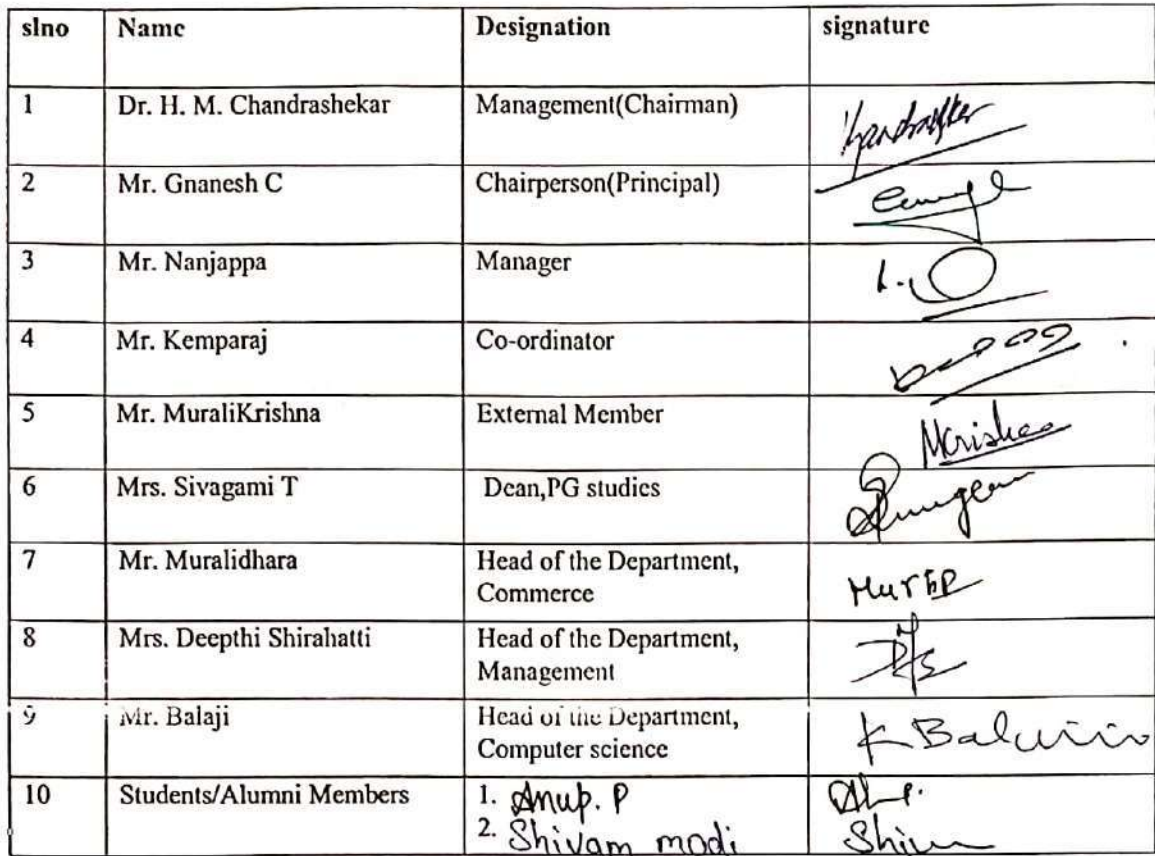 slno Name Designation signature
1 Dr. H. M. Chandrashekar Management(Chairman)
2 Mr. Gnanesh C Chairperson(Principal)
3 Mr. Nanjappa Manager
4 Mr. Kemparaj Co-ordinator
5 Mr. MuraliKrishna External Member
6 Mrs. Sivagami T Dean,PG studies
7 Mr. Muralidhara Head of the Department,
Commerce
8 Mrs. Deepthi Shirahatti Head of the Department,
Management
9 Mr. Balaji Head of the Department,
Computer science
10 Students/Alumni Members 1. Anup. P
2. Shivam modi